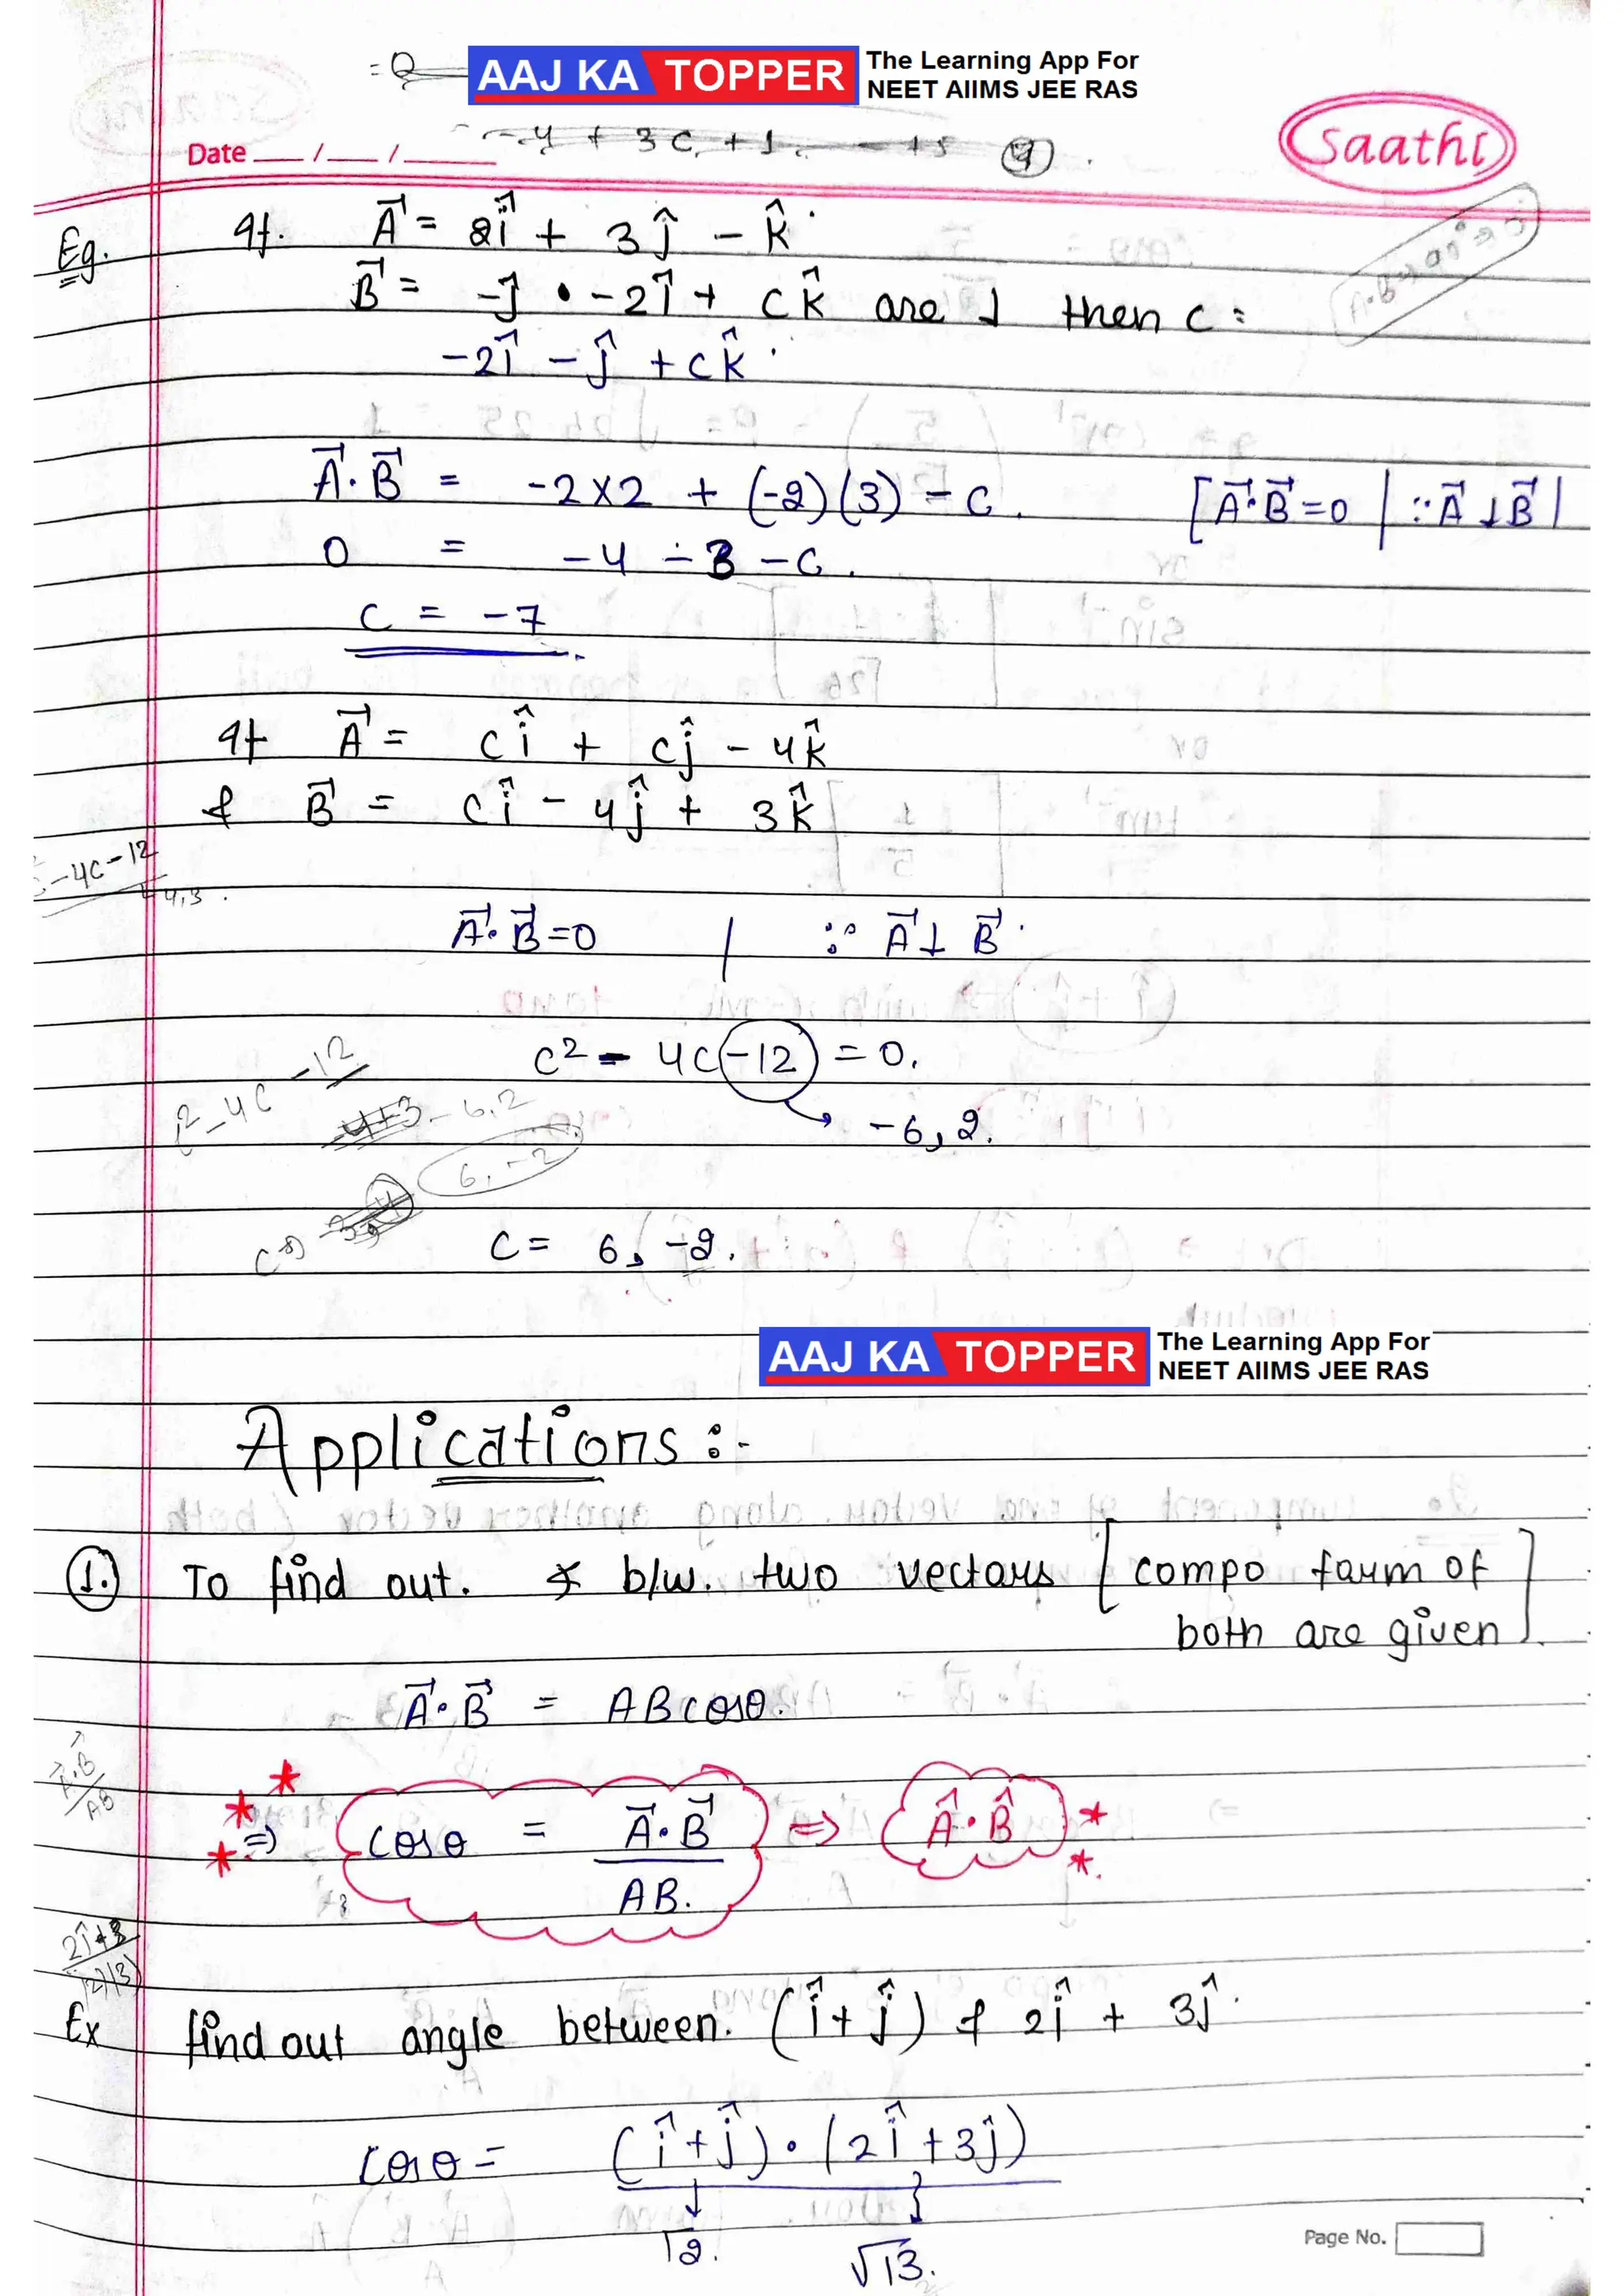 = Q
AAJ KA TOPPER The Learning App For
NEET AIIMS JEE RAS
Date __ / __ / ____
-4 + 3c + 1 + 5 (9)
Saathi
Eg. If. A⃗ = 2î + 3ĵ - k̂
B⃗ = -ĵ • -2î + ck̂ are ⊥ then c =
-2î - ĵ + ck̂
A⃗·B⃗ = -2×2 + (-2)(3) - c. [A⃗·B⃗ = 0 | ∵ A⃗ ⊥ B⃗ |
0 = -4 - 3 - c.
c = -7
If A⃗ = cî + cĵ - 4k̂
& B⃗ = cî - 4ĵ + 3k̂
-4c-12
4,3
A⃗·B⃗=0 | ∵ A⃗ ⊥ B⃗
c² - 4c -12 = 0.
-6, 2.
c²-4c -12
-4+3 -6,2
6, -2
c = 6, -2.
AAJ KA TOPPER The Learning App For
NEET AIIMS JEE RAS
Applications :-
1. To find out. ∡ b/w. two vectors [compo form of
both are given].
A⃗·B⃗ = AB cosθ.
A⃗·B⃗/AB
⇒ cosθ = A⃗·B⃗ / AB. ⇒ Â·B̂
2î+3
Ex find out angle between. (î + ĵ) & 2î + 3ĵ.
cosθ = (î+ĵ)·(2î+3ĵ)
√2. √13.
Page No.